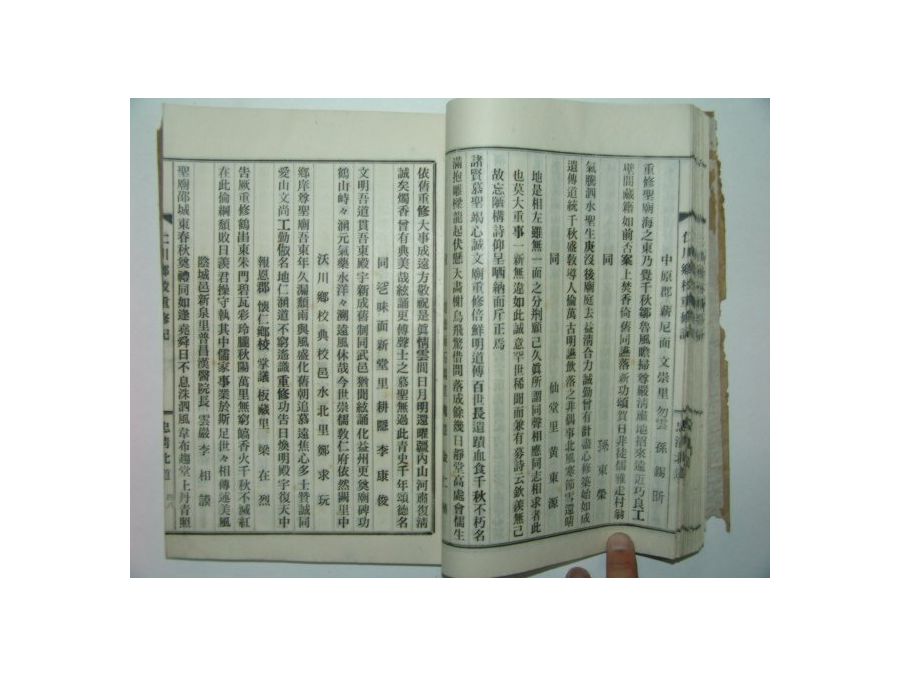 中原郡 薪尼面 文崇里 勿雲 孫錫昕
重修聖廟海之東乃覺千秋鄒魯風瞻掃尊嚴淸肅地招來遠近巧良工
壁間藏籍如前舍案上焚香倚舊同讌落新功頌賀日非徒儒雅走村翁
同 孫東榮
氣騰泗水聖生庚沒後廟庭去益淸合力誠勤曾有計論心修築始如成
遺傳道統千秋盛敎導人倫萬古明讌飮落之非偶事北風寒節雪還晴
同 仙堂里 黃東源
地是相左雖無一面之分荊願已久眞所謂同聲相應同志相求者此
也莫大重事一新無違如此誠意空世稀聞而兼有募詩云欽羨無己
故忘陋構詩仰呈哂納而斥正焉
諸賢慕聖竭心誠文廟重修倍鮮明道傳百世長遺蹟血食千秋不朽名
滿抱雕樑龍起伏懸大畵樹鳥飛驚借問落成餘幾日靜堂高處會儒生
依舊重修大事成遠方敬祝是眞情雲間日月明還曜疆內山河肅復淸
誠矣燭香曾有典美哉絃誦更傳聲士之慕聖無過此靑史千年頌德名
同 味面新堂里 耕隱 李康俊
文明吾道貫吾東殿宇新成舊制同武邑猶聞絃誦化益州更奠廟碑功
鶴山峙々涵元氣藥水洋々溯遠風休哉今世崇儒敎仁府依然闕里中
沃川鄕校典校邑水北里 鄭求玩
鄕庠尊聖廟吾東年久漏頹雨與風盛化舊朝追慕遠焦心多士贊誠同
愛山文尙工勤倣名地仁涵道不窮遙識重修功告日煥明殿宇復天中
報恩郡 懷仁鄕校 掌議 板藏里 梁在烈
告厥重修鶴出東朱門碧瓦彩玲朧秋陽萬里無窮皜香火千秋不滅紅
在此倫綱頹敗日羨君操守執其中儒家事業於斯足世々相傳述美風
陰城邑新泉里普昌漢醫院長 雲嚴 李相談
聖廟邵城東春秋奠禮同如逢堯舜日不息洙泗風韋布趨堂上丹靑照
仁川鄕校重修記 忠淸北道